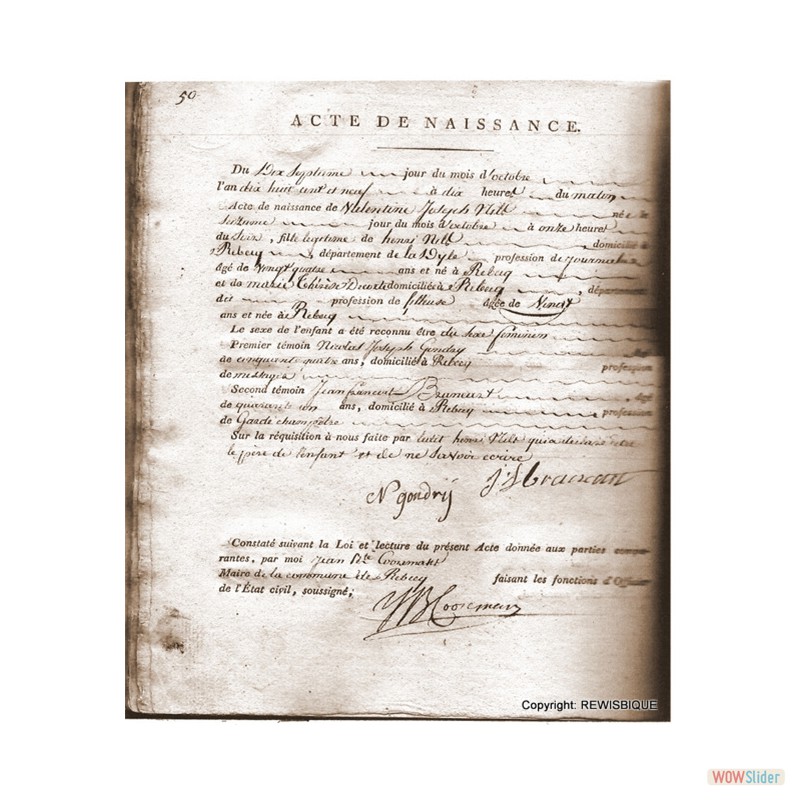 50
ACTE DE NAISSANCE.
Du Dix Septieme jour du mois d'octobre
l'an dix huit cent et neuf à dix heures du matin
Acte de naissance de Valentine Joseph Nelt née le
Seizieme jour du mois d'octobre à onze heures
du Soir, fille legitime de henri Nelt domicilié à
Rebecq, département de la Dyle profession de journalier
âgé de Vingt quatre ans et né à Rebecq
et de marie Thérèse domiciliée à Rebecq, département
dit profession de fileuse âgée de Vingt
ans et née à Rebecq
Le sexe de l'enfant a été reconnu être du Sexe feminin
Premier témoin Nicolas Joseph Gondry âgé
de cinquante quatre ans, domicilié à Rebecq profession
de
Second témoin Jean francois âgé
de quarante un ans, domicilié à Rebecq profession
de Garde champêtre
Sur la réquisition à nous faite par ledit henri Nelt qui a declaré etre
le père de l'enfant et de ne Savoir ecrire
N gondrÿ
Constaté suivant la Loi et lecture du présent Acte donnée aux parties compa-
rantes, par moi Jean Bte Coosemans
Maire de la commune de Rebecq faisant les fonctions d'Officier
de l'État civil, soussigné;
JB Coosemans
Copyright: REWISBIQUE
WOWSlider